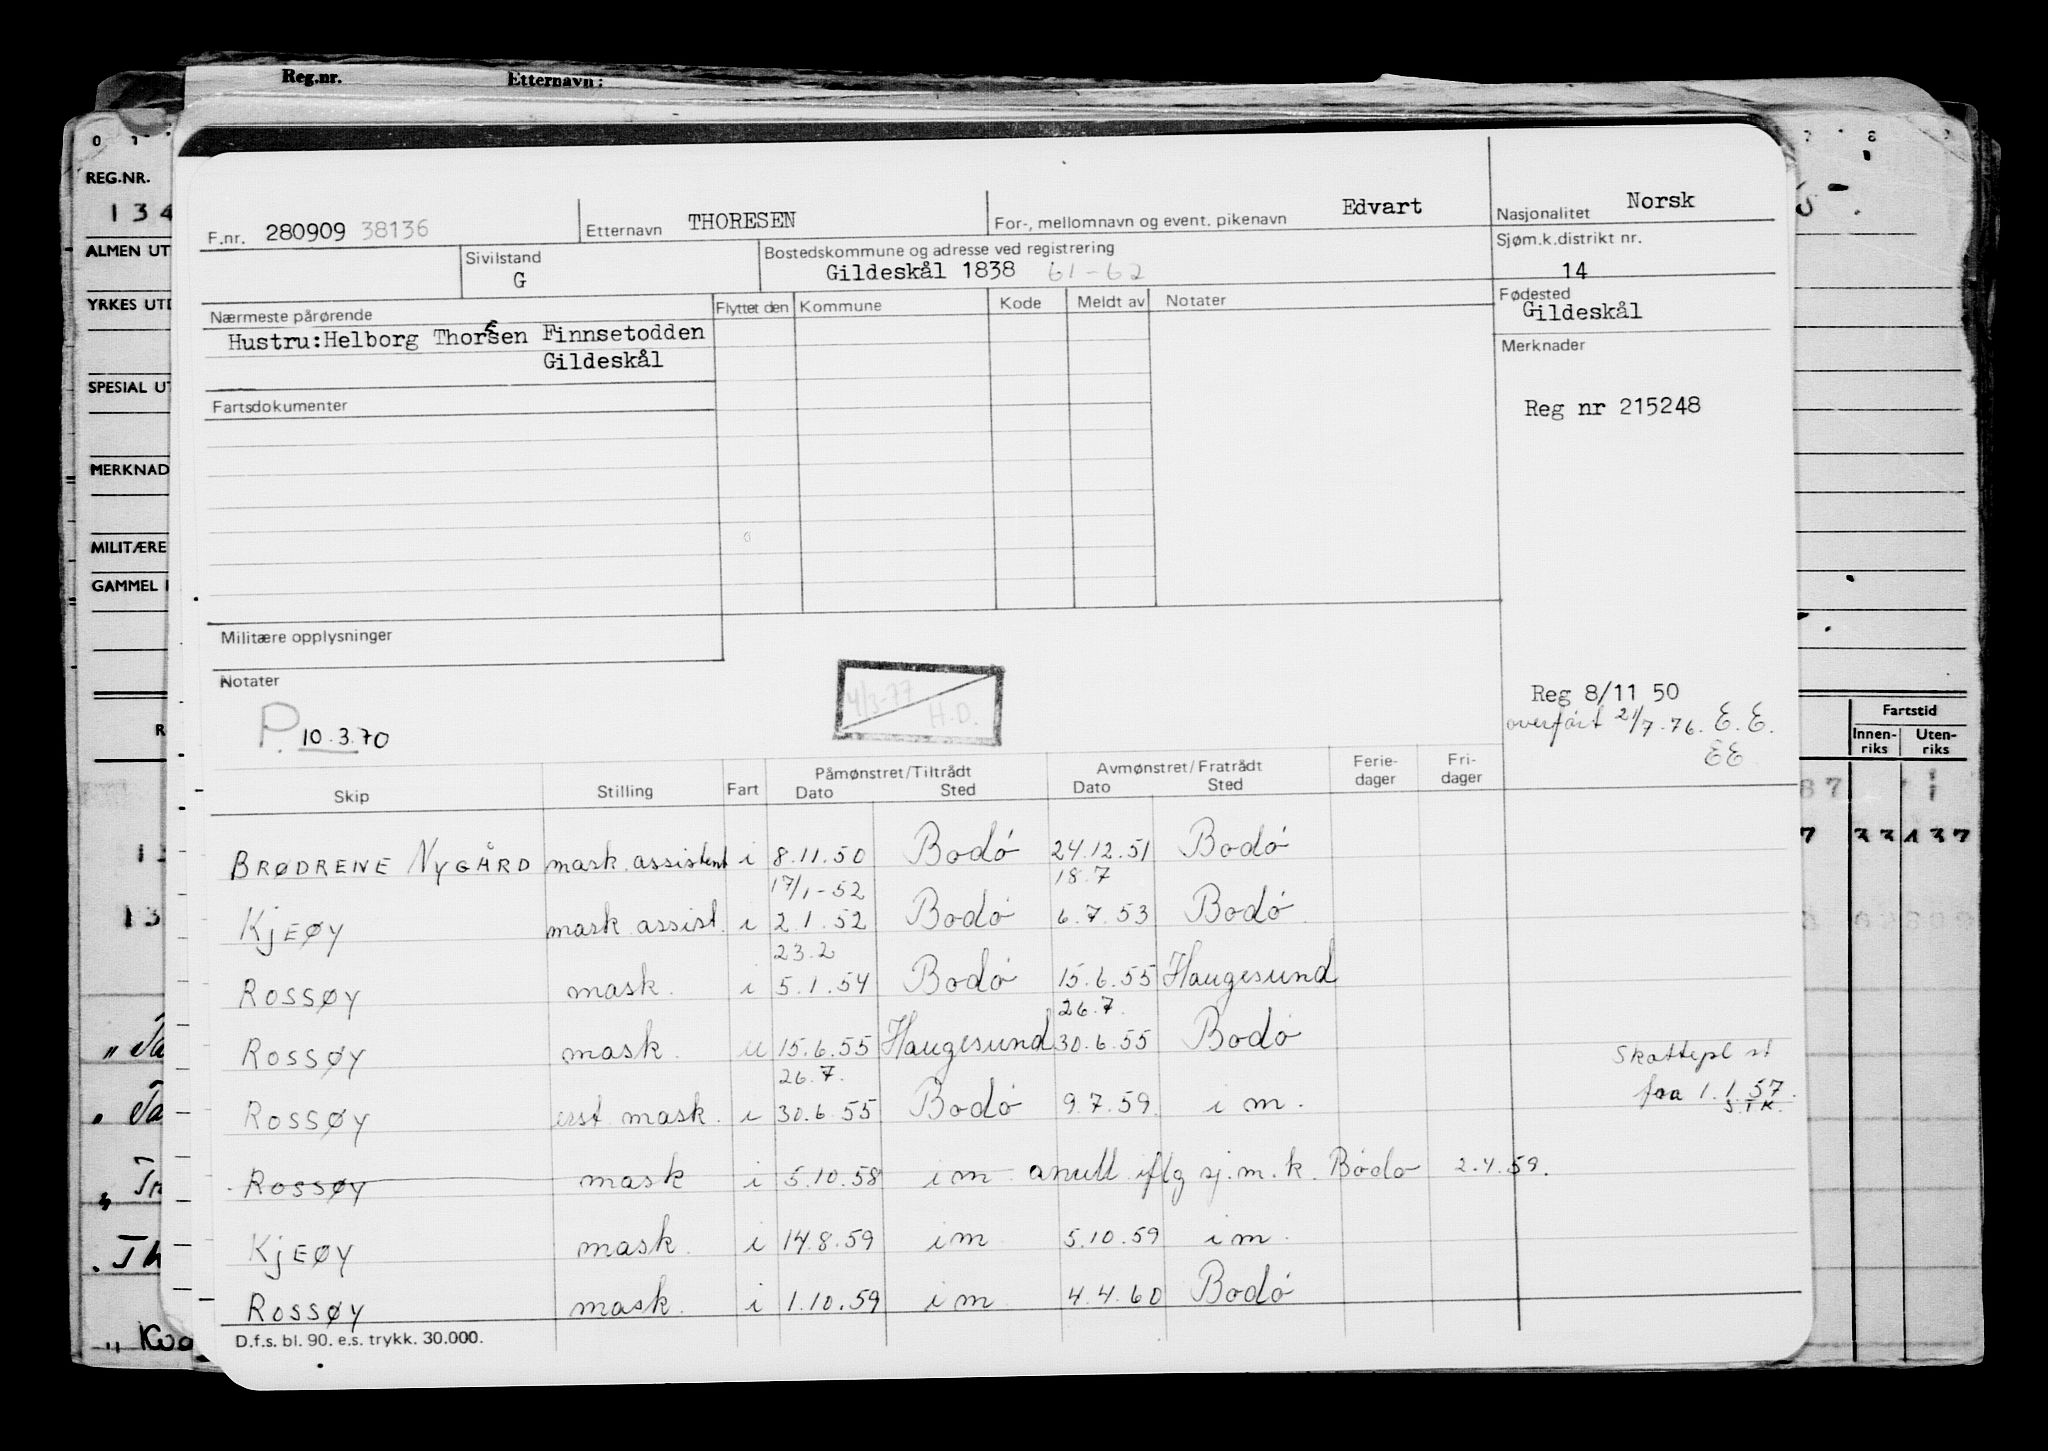 Reg.nr. Etternavn:
REG.NR.
134
ALMEN UT
YRKES UTD
SPESIAL UT
MERKNAD
MILITÆRE
GAMMEL
F.nr. 280909 38136 Etternavn THORESEN For-, mellomnavn og event. pikenavn Edvart Nasjonalitet Norsk
Sivilstand G Bostedskommune og adresse ved registrering Gildeskål 1838 61-62 Sjøm.k.distrikt nr. 14
Nærmeste pårørende Flyttet den Kommune Kode Meldt av Notater Fødested Gildeskål
Hustru: Helborg Thoresen Finnsetodden
Gildeskål
Merknader
Fartsdokumenter
Reg nr 215248
Militære opplysninger
Notater
4/3-77 H.O.
P. 10.3.70
Reg 8/11 50
overført 21/7-76. E.E.
EE
Fartstid
Innen-riks Uten-riks
Skip Stilling Fart Påmønstret/Tiltrådt Dato Sted Avmønstret/Fratrådt Dato Sted Ferie-dager Fri-dager
BRØDRENE NYGÅRD mask. assistent i 8.11.50 Bodø 24.12.51 Bodø
17/1-52 18.7
KJEØY mask assist. i 2.1.52 Bodø 6.7.53 Bodø
23.2
ROSSØY mask. i 5.1.54 Bodø 15.6.55 Haugesund
26.7.
ROSSØY mask. u 15.6.55 Haugesund 30.6.55 Bodø
26.7.
Skattepl st
fra 1.1.57.
S.T.K.
ROSSØY erst mask. i 30.6.55 Bodø 9.7.59 i m.
ROSSØY mask i 5.10.58 i m anull iflg sj.m.k. Bodø 2.4.59.
KJEØY mask. i 14.8.59 i m 5.10.59 i m.
ROSSØY mask. i 1.10.59 i m 4.4.60 Bodø
D.f.s. bl. 90. e.s. trykk. 30.000.